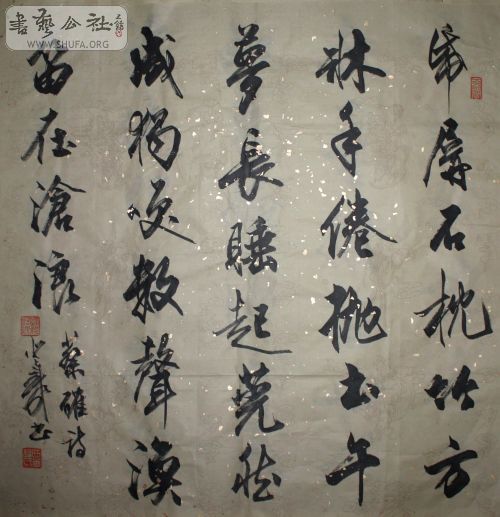 書藝公社
WWW.SHUFA.ORG
帋屏石枕竹方
牀手倦拋书午
夢長睡起莞然
成獨咲數聲漁
笛在滄浪
蔡確詩
书